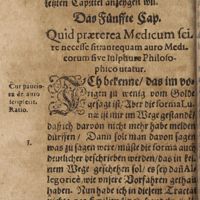 letzten Capittel anzeigen wil.
Das Fünffte Cap.
Quid præterea Medicum sci-
re necesse sit antequam auro Medi-
corum sive sulphure Philoso-
phico utatur.
Ich bekenne/ das im vo-
rigen zu wenig vom Golde
gesagt ist/ Aber die forma Luna
æ ist mir im Weg gestanden/
das ich davon nicht mehr habe melden
dürffen. Dann sol man davon sagen
was zu sagen ist/ so müste die forma auch
deutlicher beschrieben werden/ das in kei-
nem Weg geschehen sol/ es sey dan Al-
legoricè, wie unsere Vorfahren gethan
haben. Nun habe ich in diesem Tractat
Cur paucio-
ra de auro
scripserit.
Ratio.
1.